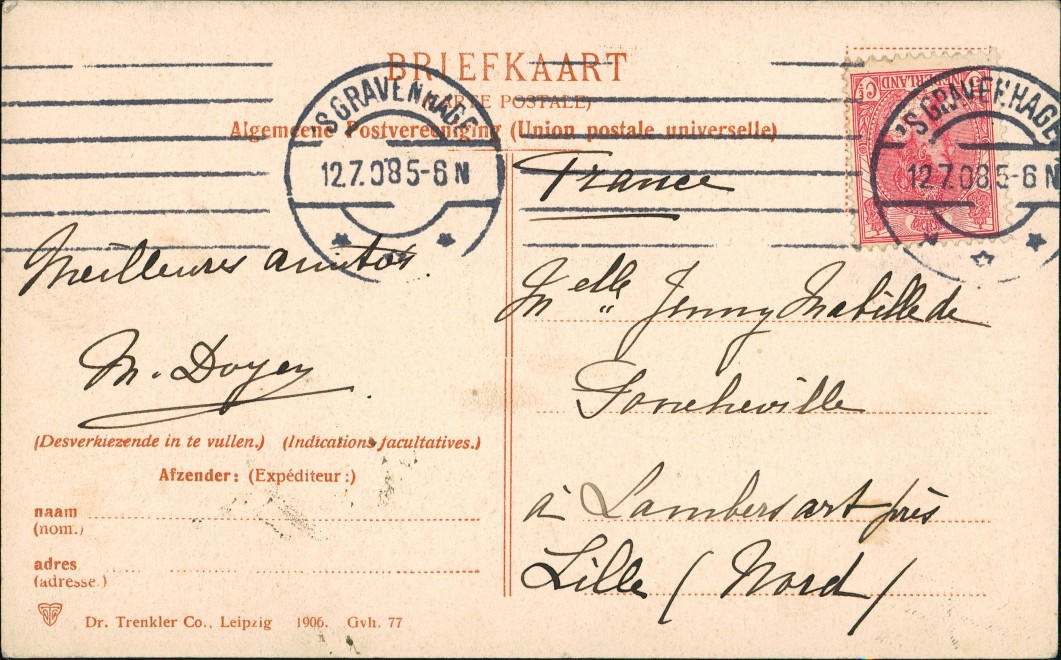 BRIEFKAART
(CARTE POSTALE)
Algemeene Postvereeniging (Union postale universelle)
'SGRAVENHAGE
12.7.08 5-6 N
'SGRAVENHAGE
12.7.08 5-6 N
NEDERLAND
France
Meilleures amitiés.
M. Doyen
Melle Jenny Mabille de
Poncheville
à Lambersart près
Lille (Nord)
(Desverkiezende in te vullen.) (Indications facultatives.)
Afzender: (Expéditeur:)
naam
(nom.)
adres
(adresse.)
Dr. Trenkler Co., Leipzig 1906. Gvh. 77